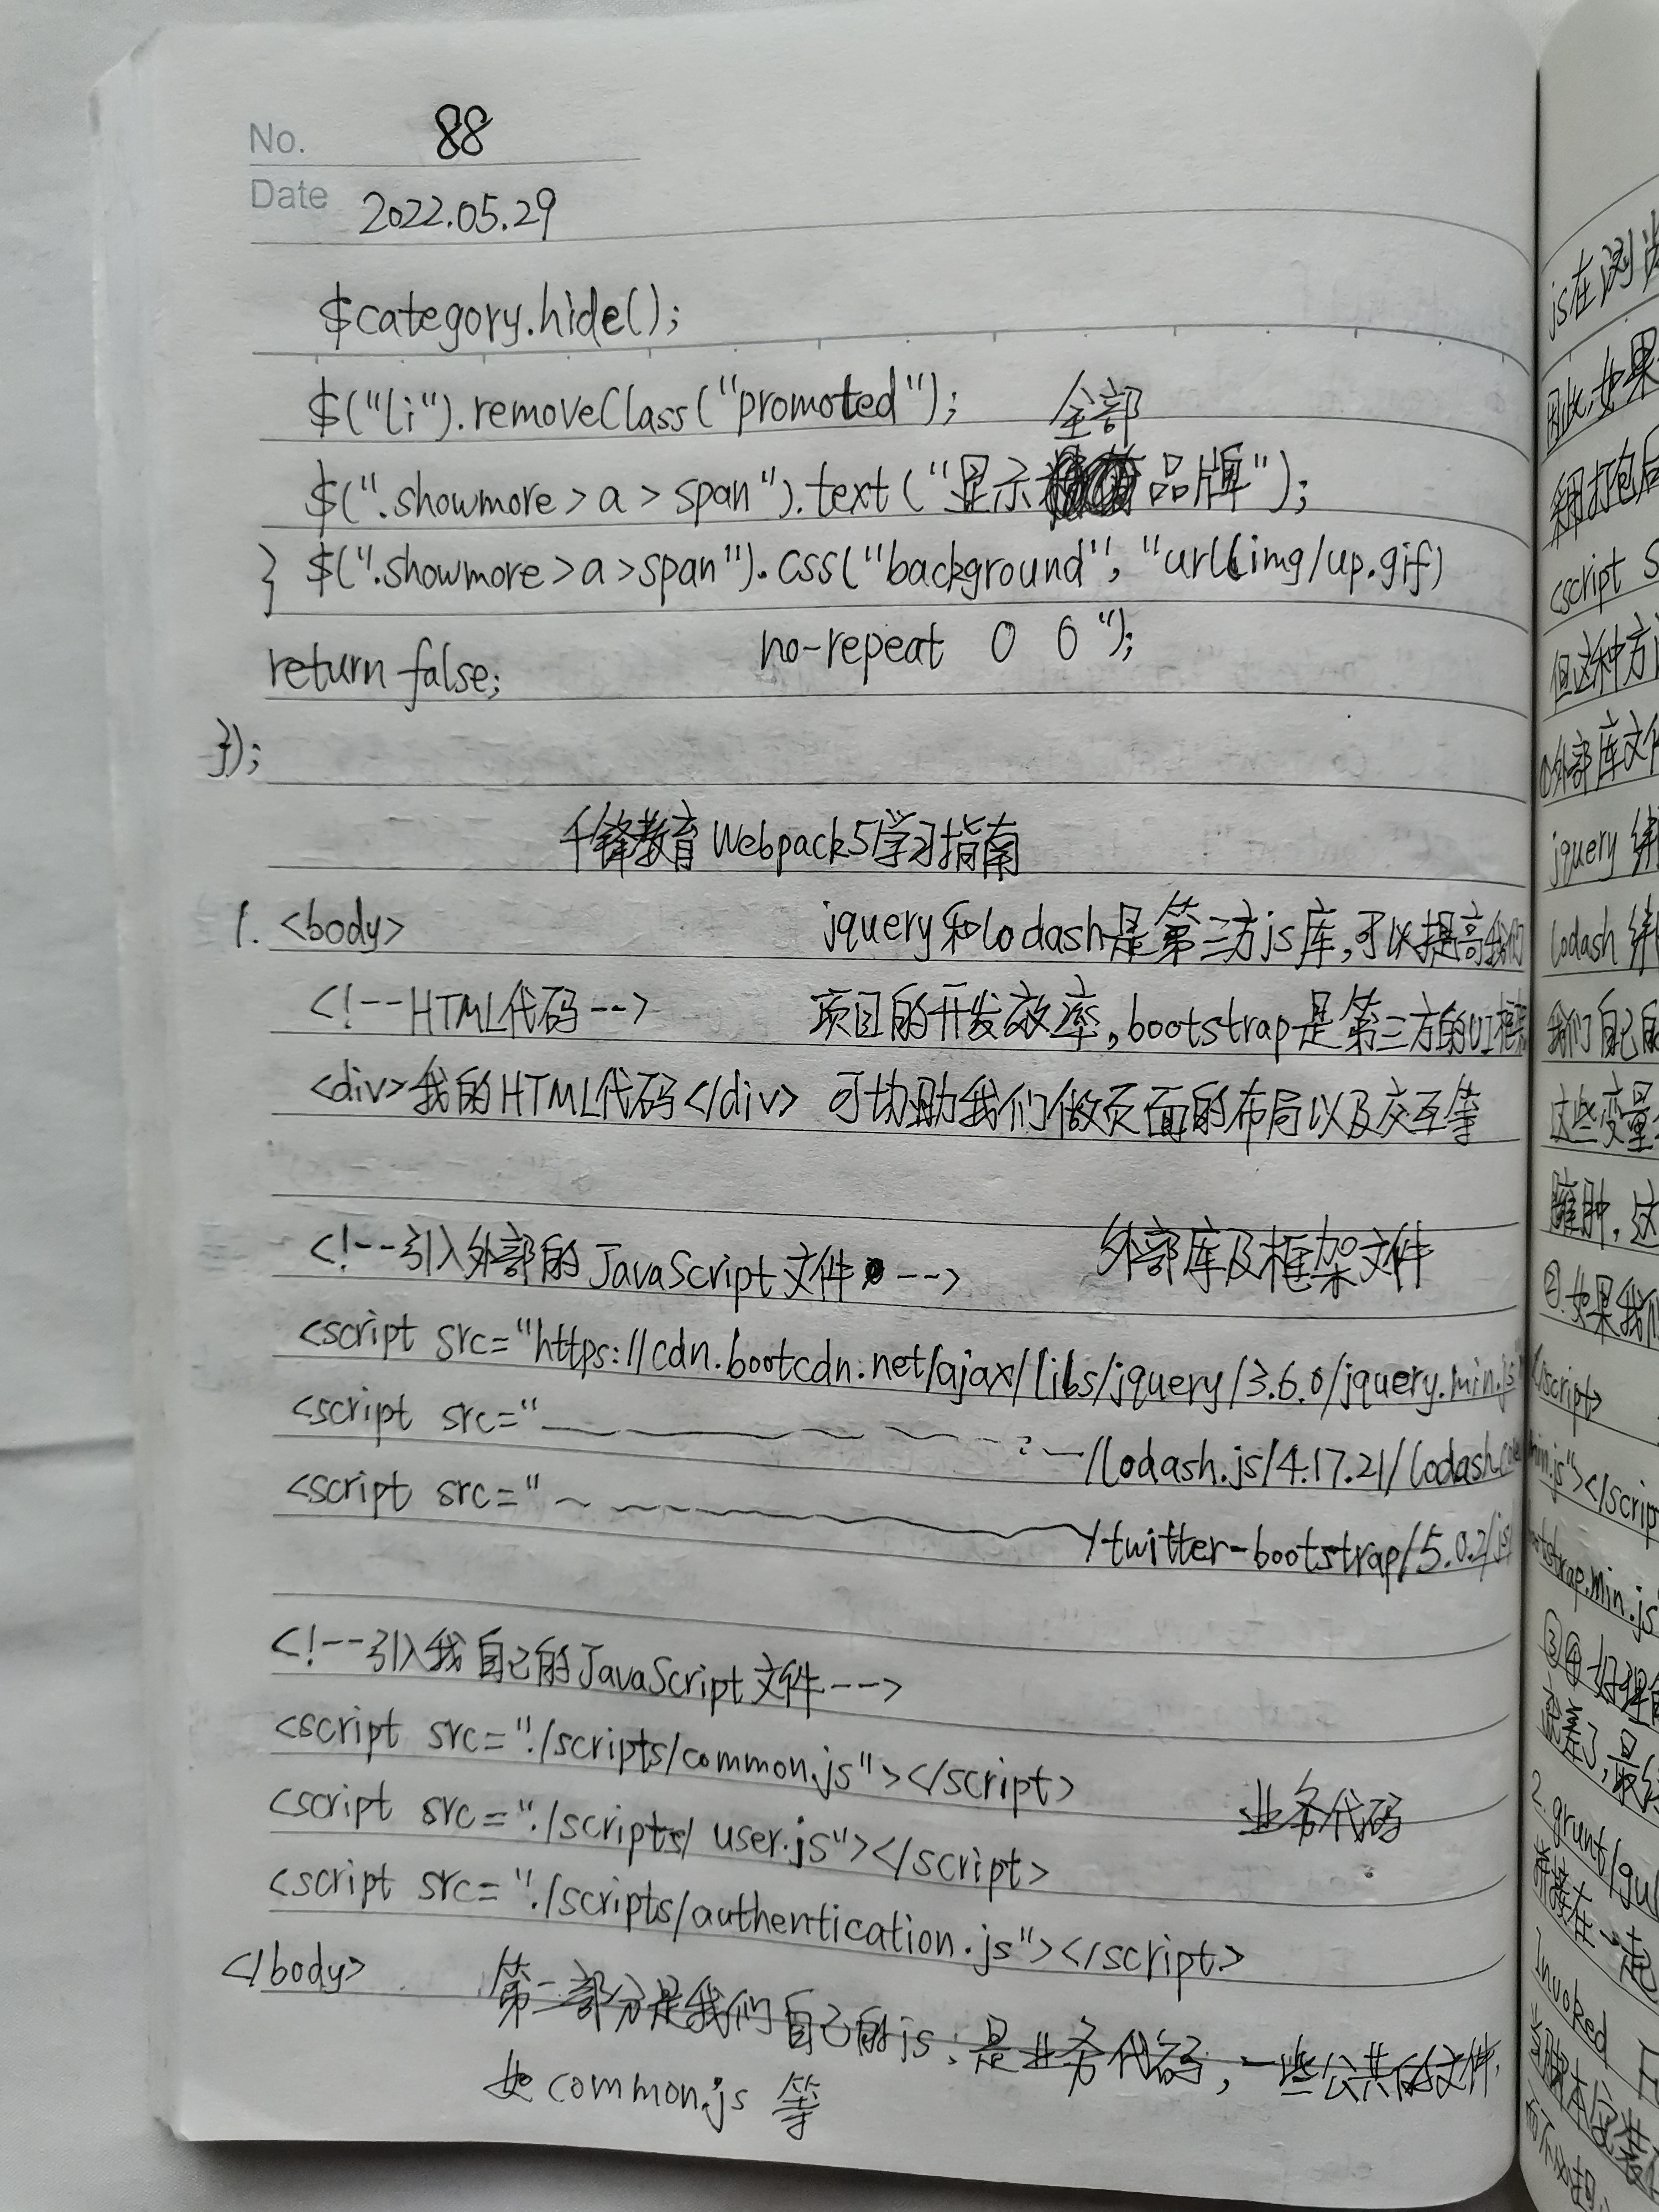 No. 88
Date 2022.05.29
$category.hide();
$("li").removeClass("promoted");
全部
$(".showmore > a > span").text("显示品牌");
} $(".showmore > a > span").css("background", "url(img/up.gif)
no-repeat 0 0");
return false;
});
千锋教育Webpack5学习指南
1. <body> jquery和lodash是第三方js库,可以提高我们
<!--HTML代码--> 项目的开发效率,bootstrap是第三方的UI框架
<div>我的HTML代码</div> 可协助我们做页面的布局以及交互等
<!--引入外部的JavaScript文件--> 外部库及框架文件
<script src="https://cdn.bootcdn.net/ajax/libs/jquery/3.6.0/jquery.min.js"
<script src="
/lodash.js/4.17.21/lodash.core
<script src="
/twitter-bootstrap/5.0.2/js/
<!--引入我自己的JavaScript文件--->
<script src="./scripts/common.js"></script>
业务代码
<script src="./scripts/user.js"></script>
<script src="./scripts/authentication.js"></script>
</body> 第二部分是我们自己的js,是业务代码,一些公共的文件,
如common.js 等
js在浏
因此,如果
翻打包后
<script s
但这种方
①外部库文件
jquery 绑
lodash 绑
我们自己的
这些变量
臃肿,这
②.如果我们
</script>
min.js"></script
bootstrap.min.js"
③④好理解
管理了,最终
2. grunt/gul
拼接在一起
Invoked F
当脚本安装